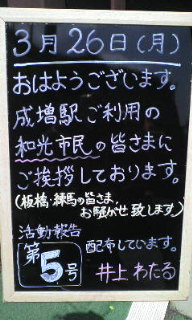 3月26日(月)
おはようございます。
成増駅ご利用の
和光市民の皆さまに
ご挨拶しております。
(板橋・練馬の皆さま、
お騒がせ致します)
活動報告
第5号
配布しています。
井上わたる